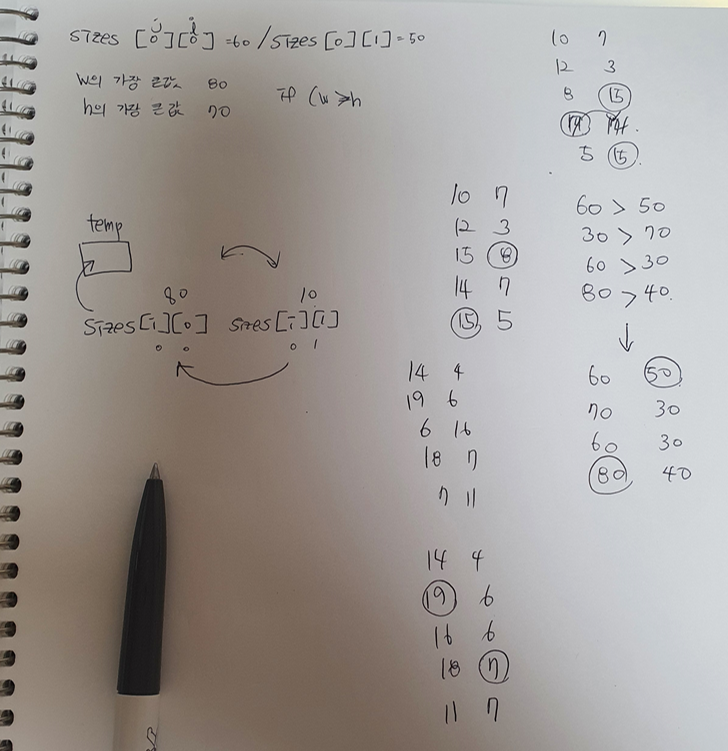 sizes [0][0] =60 / sizes [0][1] =50
j i
w의 가장 큰값 80
h의 가장 큰값 70
if (w > h
temp
80 10
sizes[i][0] sizes[i][1]
0 0 0 1
10 7
12 3
8 15
14
5 15
10 7
12 3
15 8
14 7
15 5
60 > 50
30 > 70
60 > 30
80 > 40
60 50
70 30
60 30
80 40
14 4
19 6
6 16
18 7
7 11
14 4
19 6
16 6
18 7
11 7